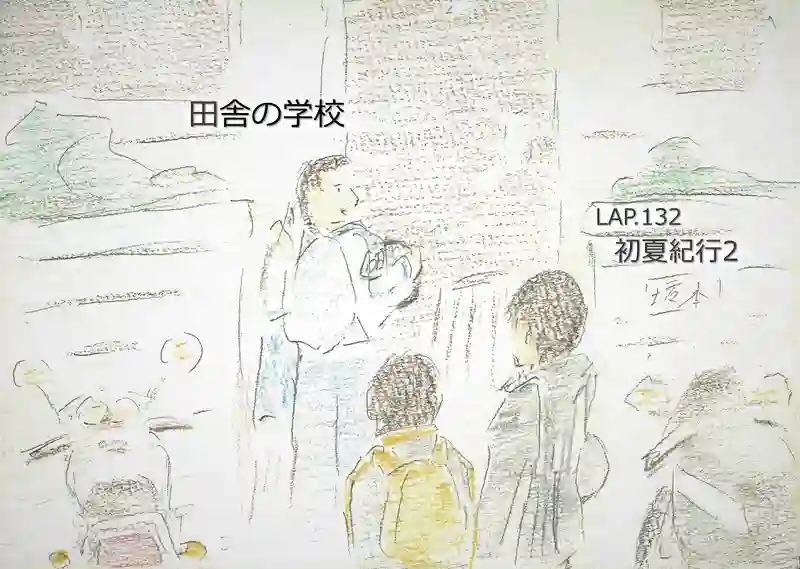 田舎の学校
LAP.132
初夏紀行2